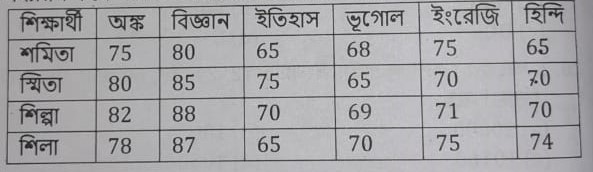 শিক্ষার্থী অঙ্ক বিজ্ঞান ইতিহাস ভূগোল ইংরেজি হিন্দি
শমিতা 75 80 65 68 75 65
স্মিতা 80 85 75 65 70 70
শিল্পা 82 88 70 69 71 70
শিলা 78 87 65 70 75 74